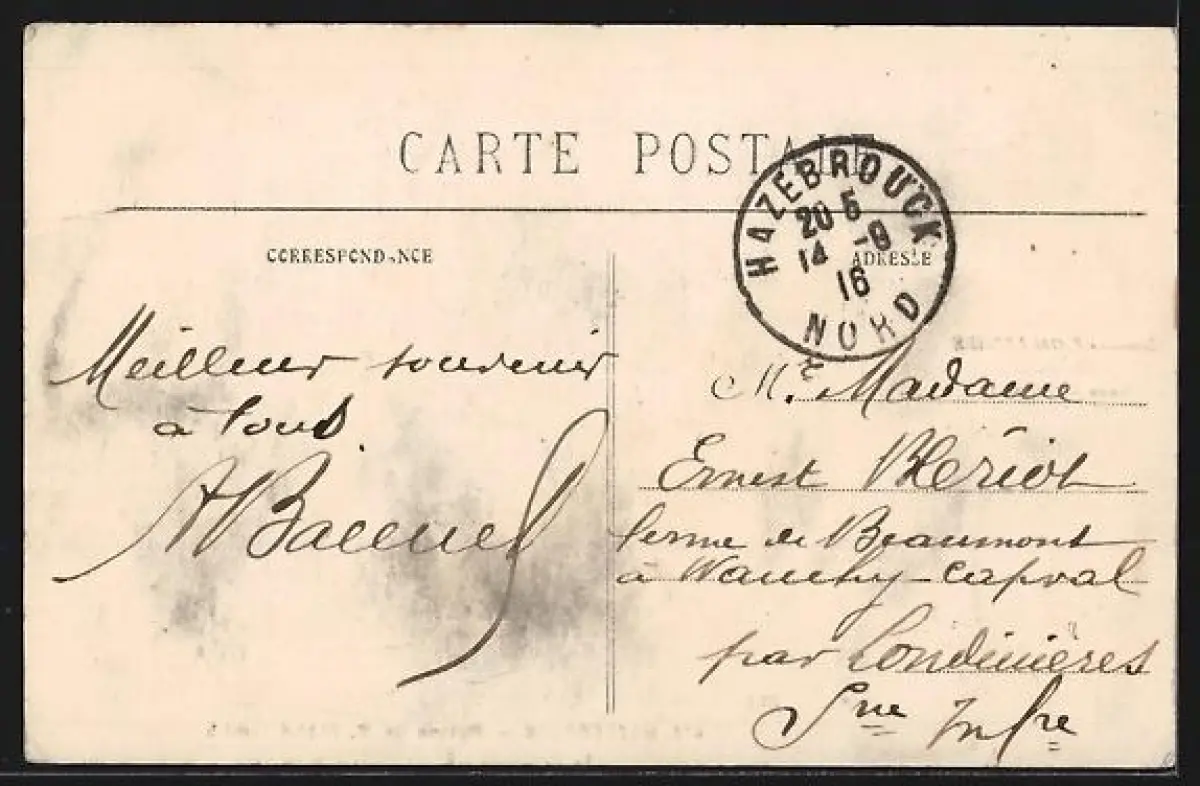 CARTE POSTALE
HAZEBROUCK
20 5
14 -8
16
NORD
CORRESPONDANCE
ADRESSE
Meilleur souvenir
à tous
M. Madame
Ernest Blériot
ferme de Beaumont
à Wanchy-Capval
par Londinières
Sne Infre